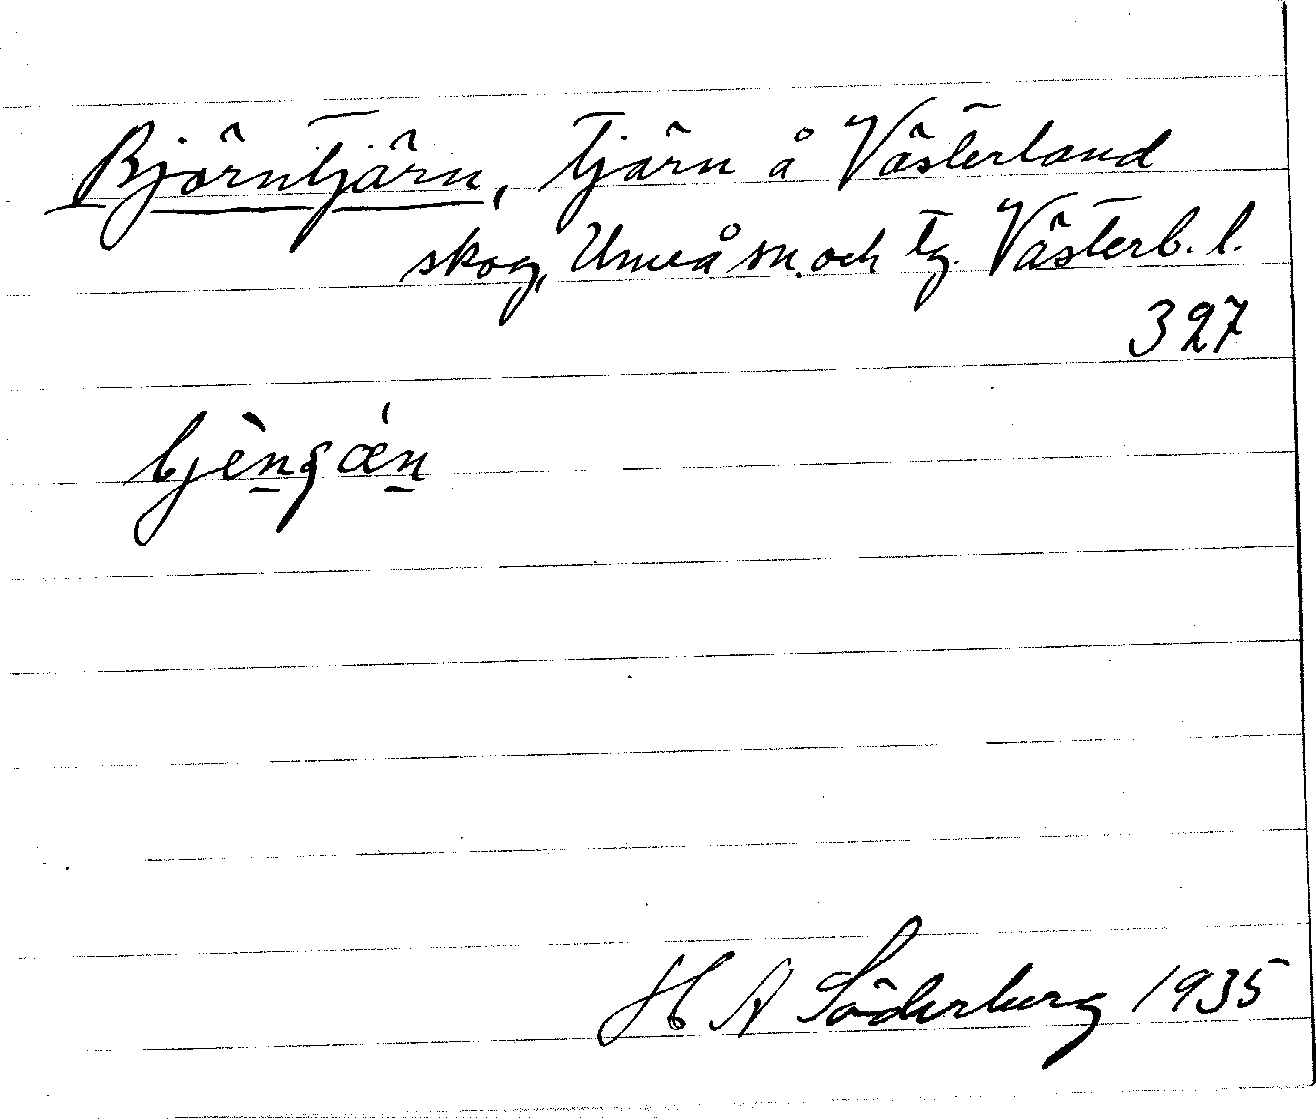 Björntjärn, tjärn å Västerland
skog, Umeå sn. och tg. Västerb. l.
327
bjèn̲ʂǽn̲
H A Söderberg 1935